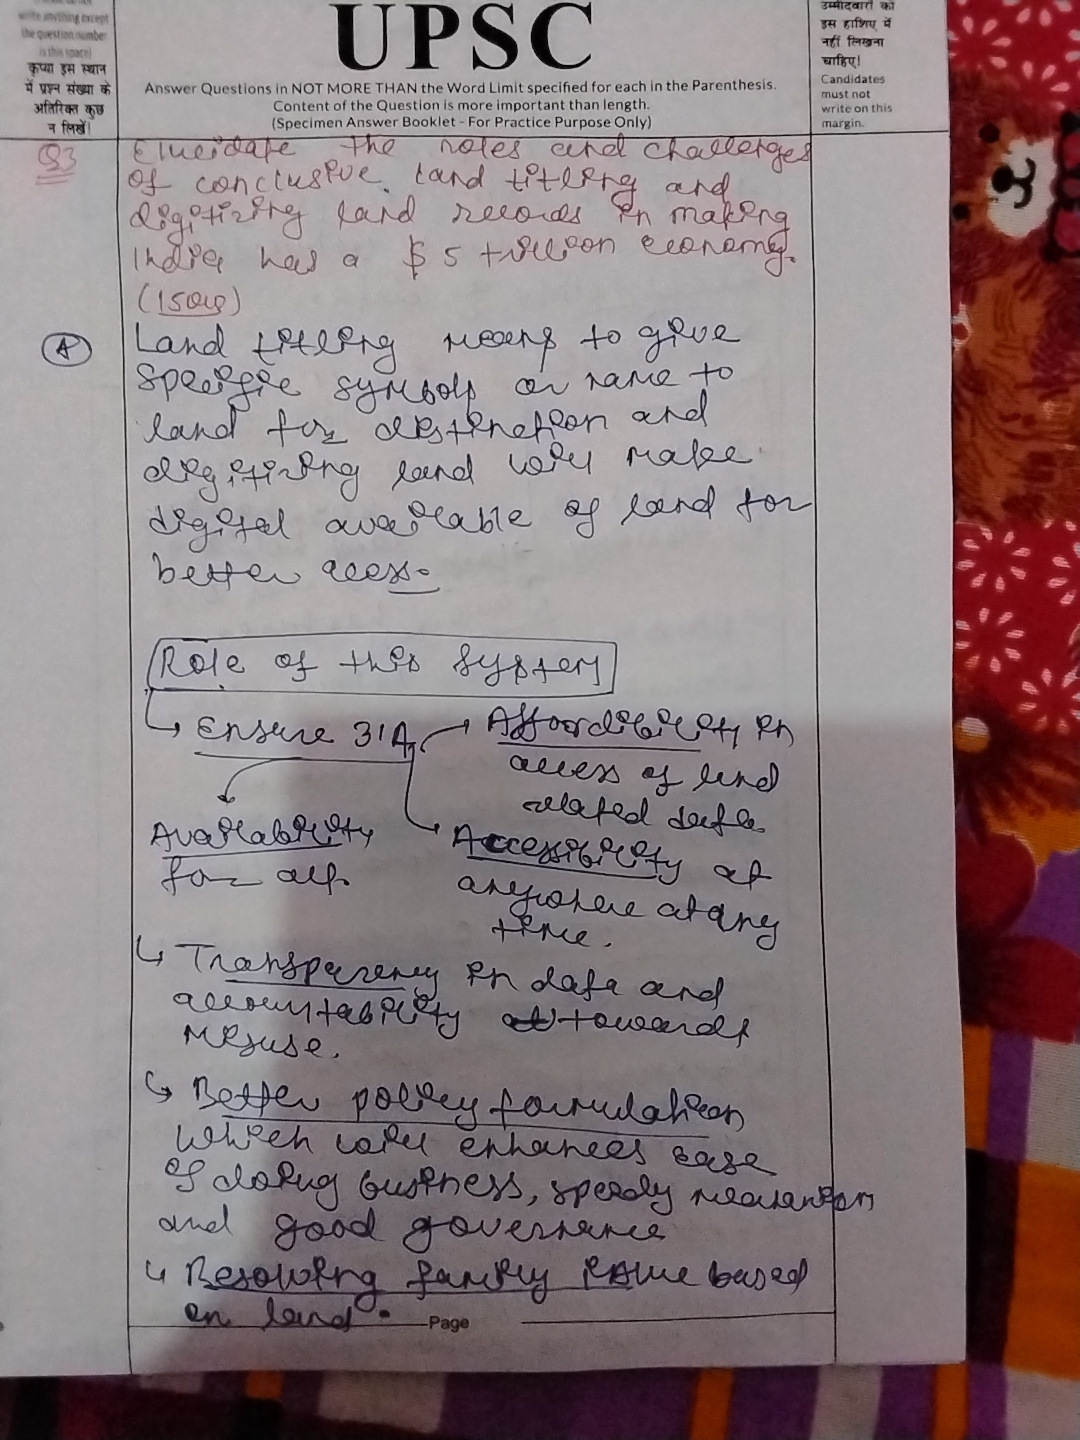 write anything except
the question number
is this space)
कृप्या इस स्थान
में प्रश्न संख्या के
अतिरिक्त कुछ
न लिखें।
UPSC
Answer Questions in NOT MORE THAN the Word Limit specified for each in the Parenthesis.
Content of the Question is more important than length.
(Specimen Answer Booklet - For Practice Purpose Only)
उम्मीदवारों को
इस हाशिए में
नहीं लिखना
चाहिए।
Candidates
must not
write on this
margin.
Q3
Elucidate the roles and challenges
of conclusive land titling and
digitizing land records in making
India has a $ 5 trillion economy.
(150
A
Land titling means to give
specific symbols or name to
land for distinction and
digitizing land will make
digital available of land for
better acess.
Role of this system
Ensure 3'A
Affordibility in
access of land
related data
Availability
for all.
Accessibility at
anywhere at any
time.
Transparency in data and
accountability towards
Misuse.
Better policy formulation
which will enhances ease
of doing business, speedy
and good governance
Resolving family issue based
on land.
Page